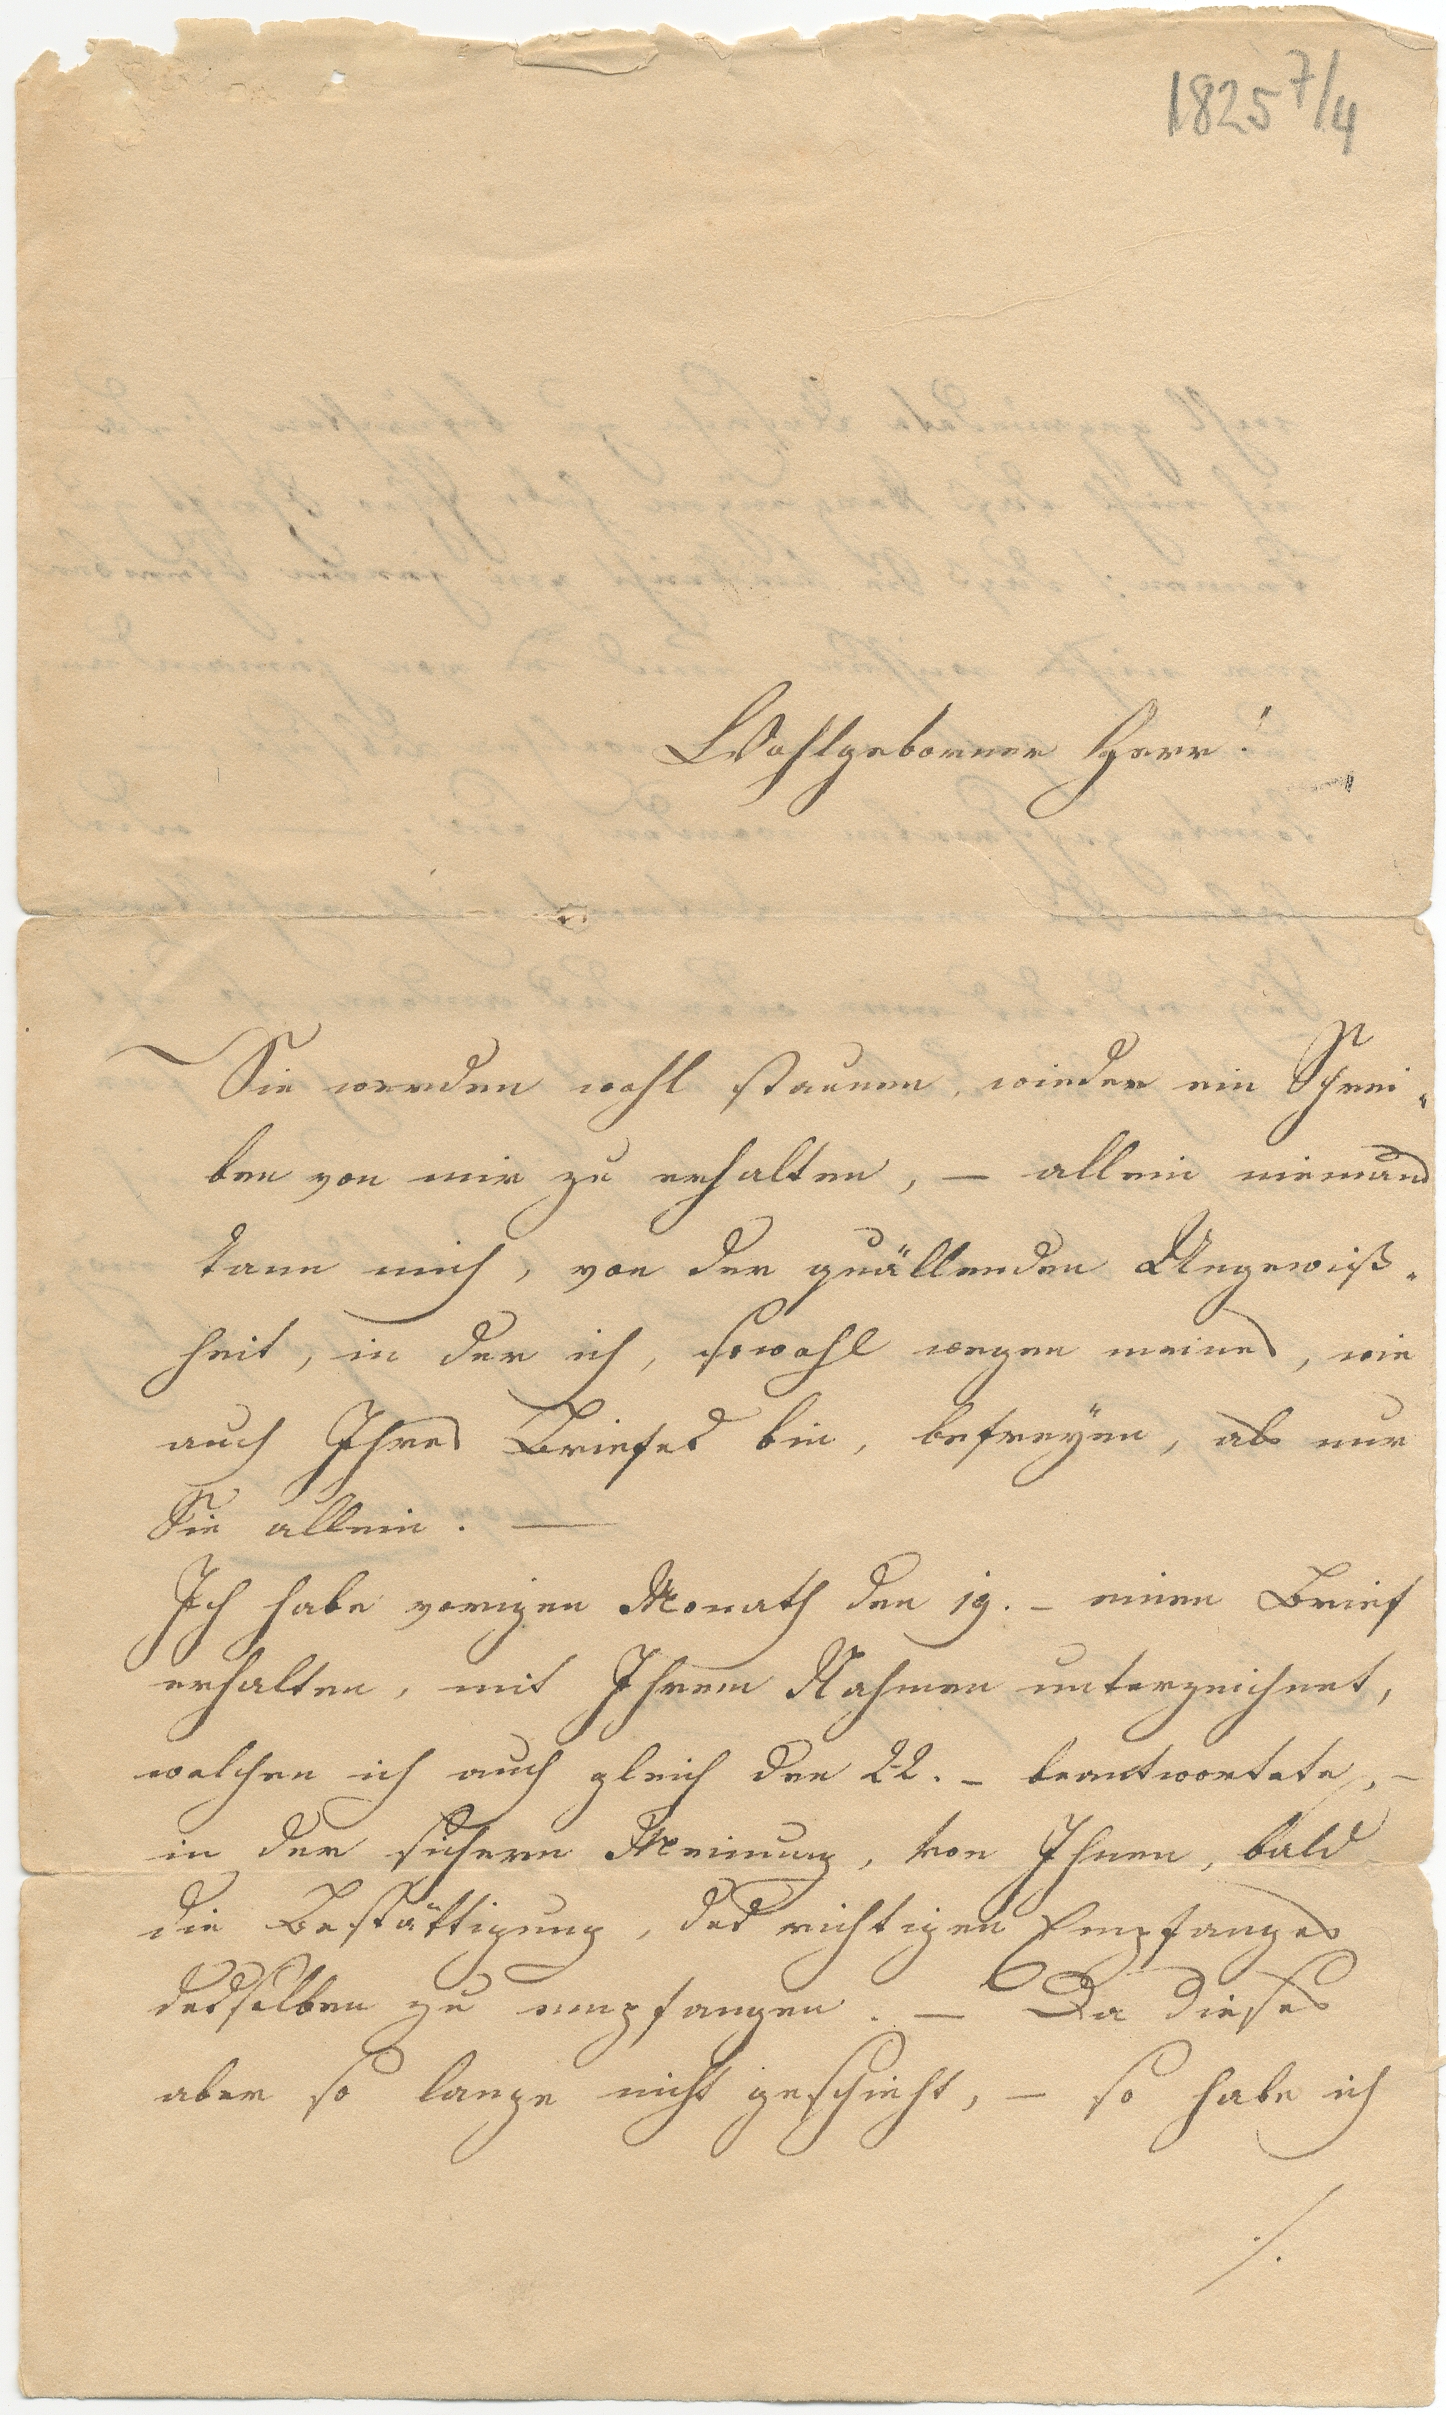 1825 7/4
Wohlgeborner Herr!
Sie werden wohl staunen, wieder ein Schrei-
ben von mir zu erhalten, — allein niemand
kann mich, von der quällenden Ungewiß-
heit, in der ich, sowohl wegen meines, wie
auch Ihres Briefes bin, befreyen, als nur
Sie allein. —
Ich habe vorigen Monath den 19. – einen Brief
erhalten, mit Ihrem Nahmen unterzeichnet,
welchen ich auch gleich den 22. – beantwortete, –
in der sichern Meinung, von Ihnen, bald
die Bestättigung, des richtigen Empfanges
desselben zu empfangen. — Da dieses
aber so lange nicht geschieht, – so habe ich
./.